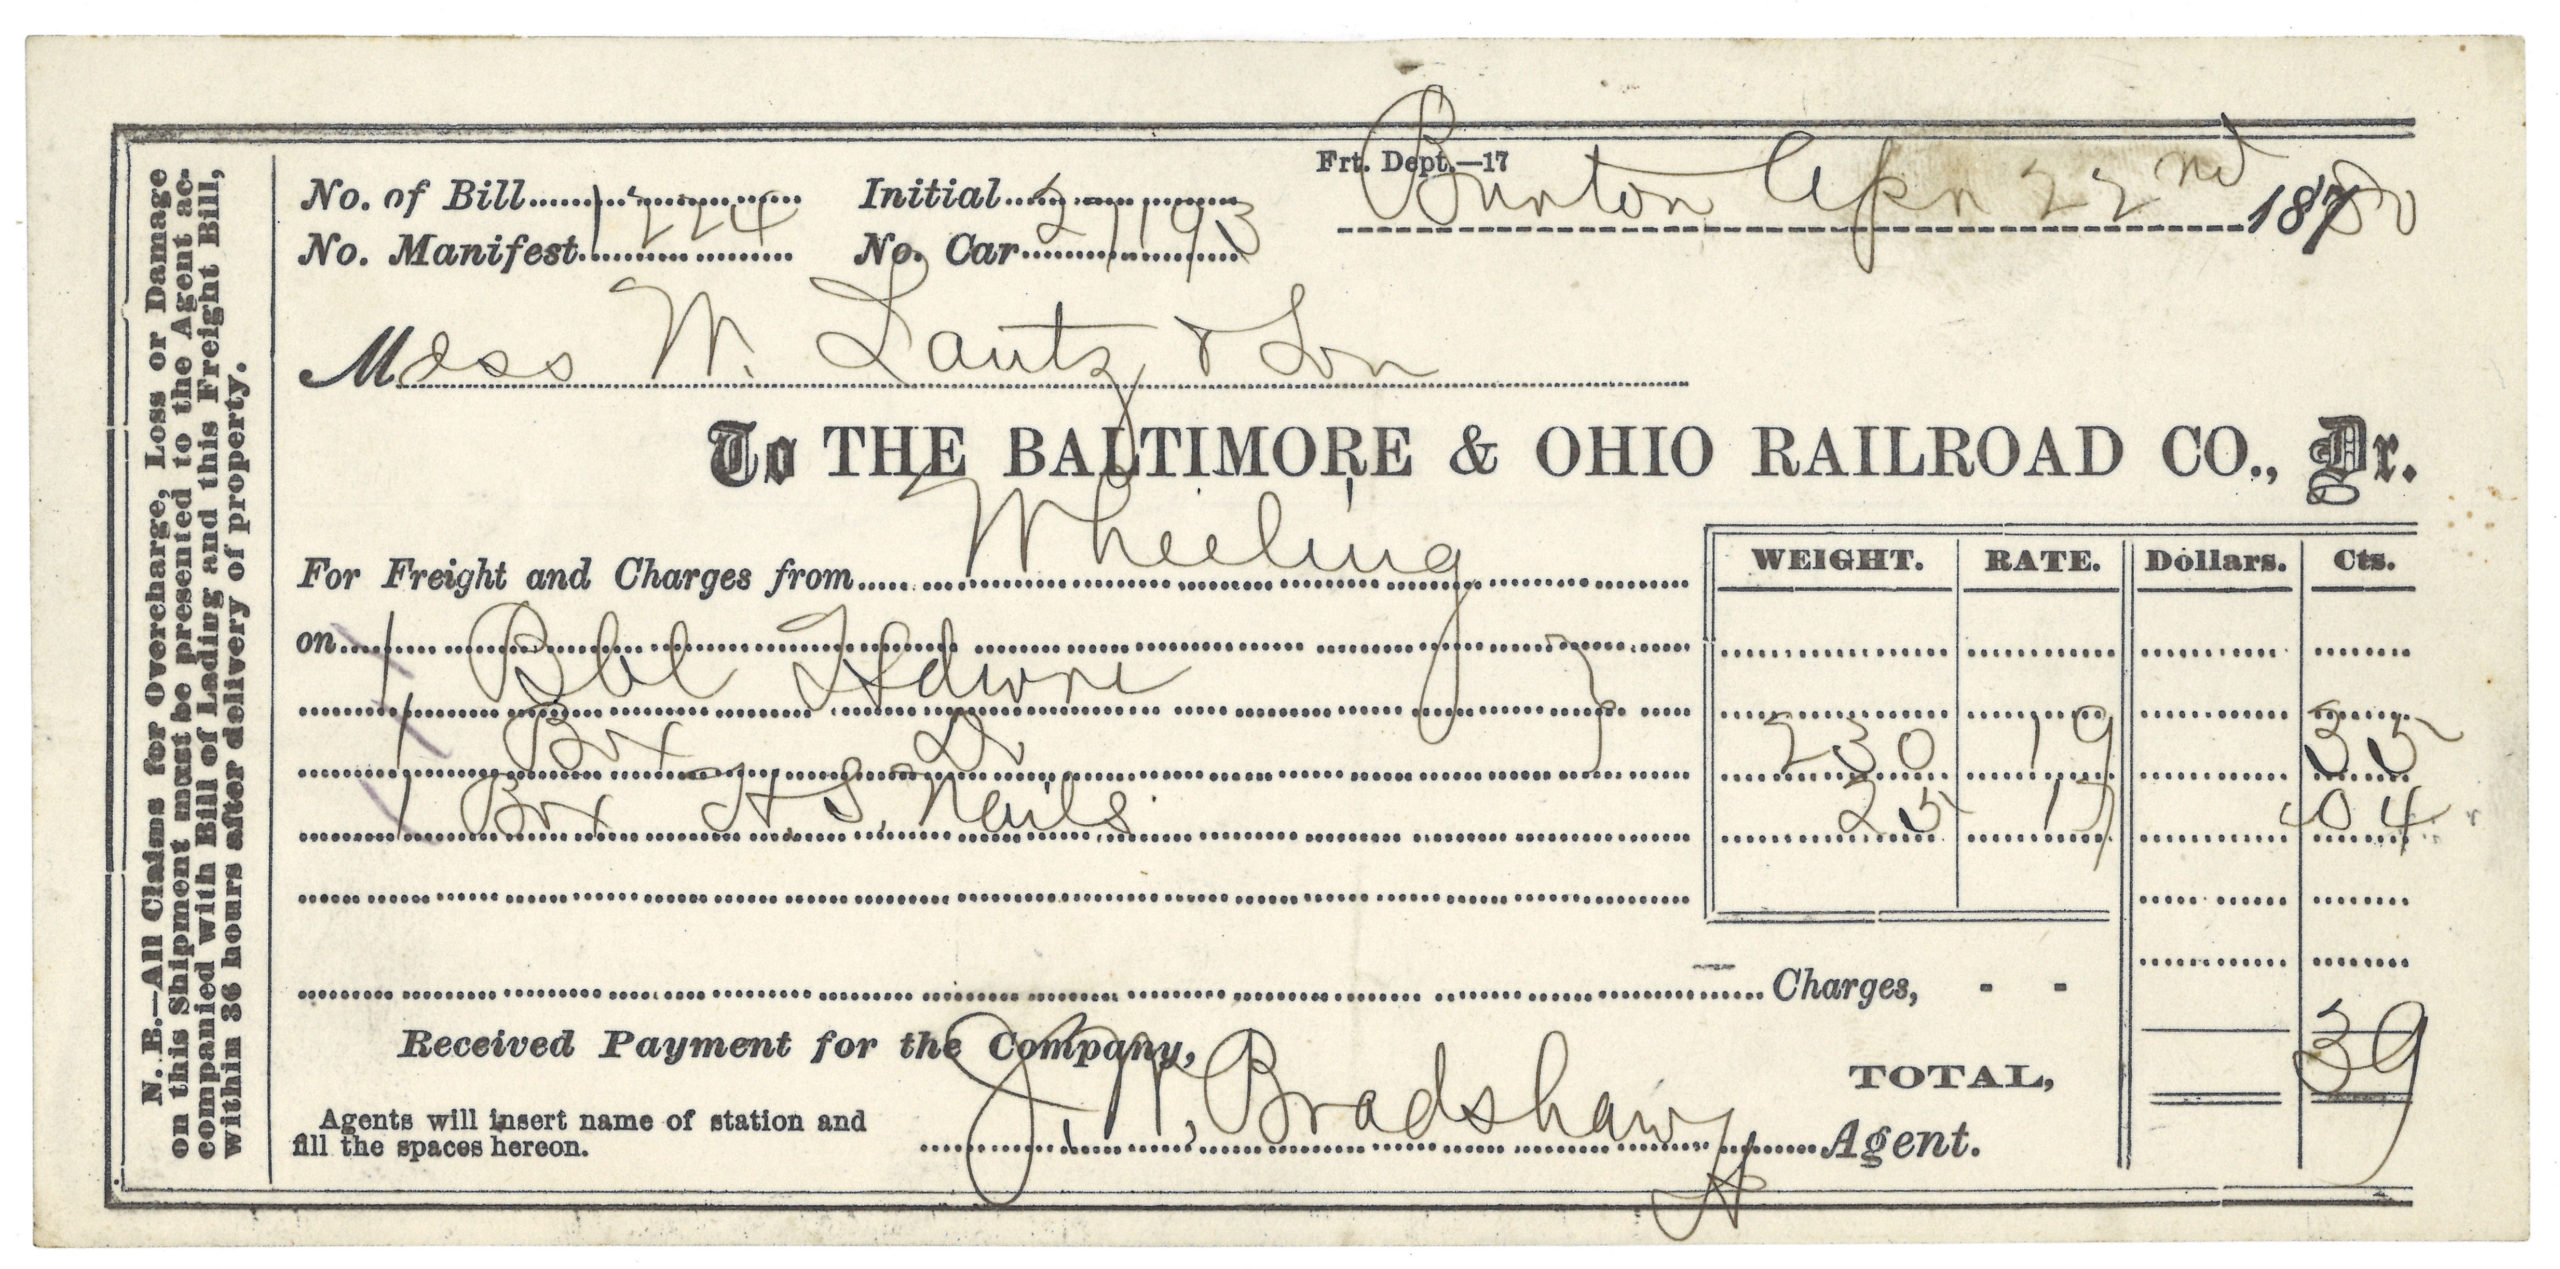 N. B.—All Claims for Overcharge, Loss or Damage
on this Shipment must be presented to the Agent ac-
companied with Bill of Lading and this Freight Bill,
within 36 hours after delivery of property.
Frt. Dept.—17
Burton Apr 22nd 1880
No. of Bill 1224 Initial
No. Manifest No. Car 27193
Mess W. Lantz & Son
To THE BALTIMORE & OHIO RAILROAD CO., Dr.
For Freight and Charges from Wheeling
WEIGHT. RATE. Dollars. Cts.
on 1 Bbl Hdwre
1 Bx Do 230 19 35
1 Bx H. S. Nails 25 17 04
Charges, - -
Received Payment for the Company,
TOTAL, 39
Agents will insert name of station and
fill the spaces hereon.
Bradshaw Agent.